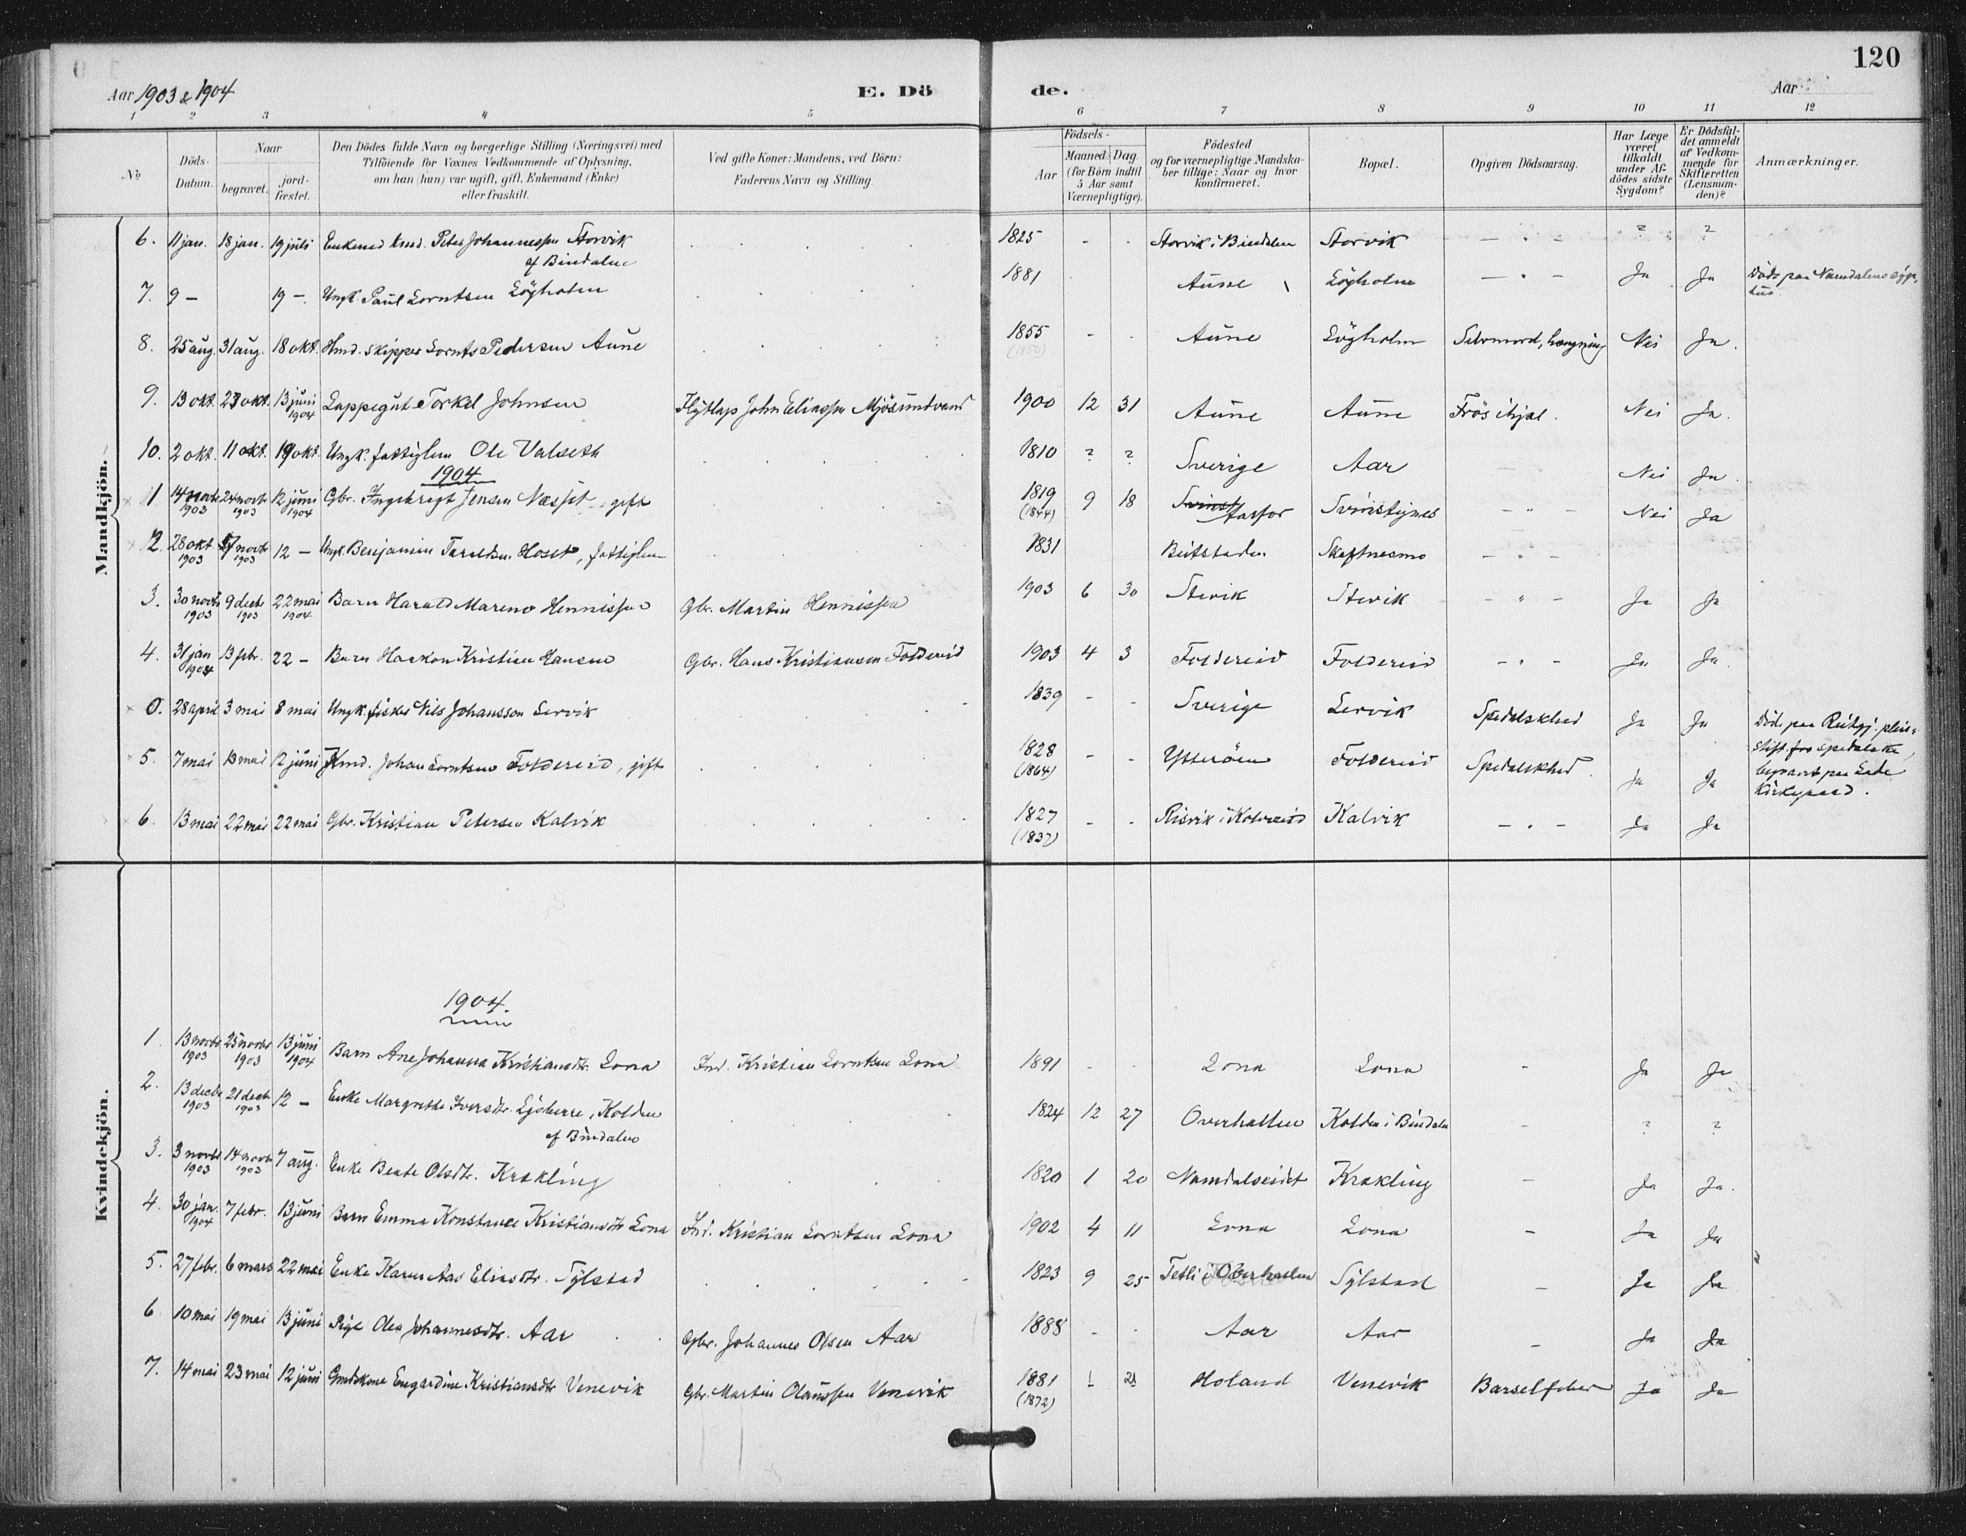 120
Aar 1903 & 1904
E. Dö
de.
Aar
1 2 3 4 5 6 7 8 9 10 11 12
No
Döds-
Datum.
Naar
begravet.
jord-
fæstet.
Den Dödes fulde Navn og borgerlige Stilling (Næringsvei) med
Tilföiende for Voxnes Vedkommende af Oplysning,
om han (hun) var ugift, gift, Enkemand (Enke)
eller fraskilt.
Ved gifte Koner: Mandens, ved Börn:
Faderens Navn og Stilling.
Födsels-
Aar
Maaned. Dag
(for Börn indtil
5 Aar samt
Værnepligtige).
Födested
og for værnepligtige Mandska-
ber tillige: Naar og hvor
konfirmeret.
Bopæl.
Opgiven Dödsaarsag.
Har Læge
været
tilkaldt
under Af-
dödes sidste
Sygdom?
Er Dödsfal-
det anmeldt
af Vedkom-
mende for
Skifteretten
(Lensman-
den)?
Anmærkninger.
Mandkjön.
6. 11 jan. 18 jan. 19 juli Enkemd. Peter Johannessen Storvik 1825 - - Storvik i Bindalen Storvik - " - ? ?
af Bindalen
7. 9 - 19 -. Ungk. Paul Lorntsen Löÿholm 1881 Aune Löÿholm - " - Ja Ja Död paa Namdalens syge-
hus.
8. 25 aug. 31 aug. 18 okt. Hmd. skipper Lornts Pedersen Aune 1855 - - Aune Löÿholm Selvmord, hængning Nei Ja.
9. 13 okt. 23 okt. 13 juni 1904 Lappegut Torkel Johnsen Flÿtlap John Eliassen Mjösundvand 1900 12 31 Aune Aune Frös ihjel. Nei Ja.
10. 2 okt. 11 okt. 19 okt. Ungk. fattiglem Ole Valseth 1810 ? ? Sverige Aar Nei Ja.
1904
1 14 novbr 1903 24 novbr 1903 12 juni 1904 Gbr. Ingebrigt Jensen Næsset, gift 1819 (1844) 9 18 Aarfor Svinstignes - " - Nei Ja
2. 28 okt 1903 17 novbr 1903 12 - Ungk. Benjamin Hoset, fattiglem 1831 Beitstaden Skaftnesmo - " -
3. 30 novbr 1903 9 decbr 1903 22 mai 1904 Barn Harald Mareno Hennissen Gbr. Martin Hennissen 1903 6 30 Stevik Stevik - " - Ja Ja
4. 31 jan 1904 13 febr. 22 - Barn Haakon Kristian Hansen Gbr. Hans Kristiansen Foldereid 1903 4 3 Foldereid Foldereid - " - Ja Ja.
0. 28 april 3 mai 8 mai Ungk. fisker Nils Johansson Lervik 1839 - - Sverige Lervik Spedalskhed Ja Ja Död paa Reitgj. pleie-
stift. for spedalske,
begravet paa Lade
Kirkegaard.
5. 7 mai 13 mai 12 juni Kmd. Johan Lorntsen Foldereid, gift 1828 (1864) - - Ytteröen Foldereid Spedalskhed. Ja Ja
6. 13 mai 22 mai 22 mai Gbr. Kristian Petersen Kalvik 1827 (1837) - - Risvik i Kolvereid Kalvik - " - Ja Ja
Kvindekjön.
1904.
1. 13 novbr 1903 25 novbr 1903 13 juni 1904 Barn Ane Johanna Kristiansdtr. Lona Ind. Kristian Lorntsen Lona 1891 - - Lona Lona - Ja Ja
2. 13 decbr 1903 21 decbr 1903 12 - Enke Margrethe Iversdtr. Kolden 1824 12 27 Overhallen Kolden i Bindalen - ? ?
af Bindalen
3. 3 novbr 1903 14 novbr 1903 7 aug. Enke Beate Olsdtr. Krakling 1820 1 20 Namdalseidet Krakling - Ja Ja.
4. 30 jan. 1904 7 febr. 13 juni Barn Emma Konstance Kristiansdtr Lona Ind. Kristian Lorntsen Lona 1902 4 11 Lona Lona - Ja Ja
5. 27 febr. 6 mars 22 mai Enke Karen Aas Eliasdtr. Sÿlstad 1823 9 25 Tetli i Overhallen Sÿlstad - Ja Ja
6 10 mai 19 mai 13 juni Pige Olea Johannesdtr. Aar Gbr. Johannes Olsen Aar 1888 - - Aar Aar - Ja Ja
7. 14 mai 23 mai 12 juni Gmdskone Engardine Kristiansdtr Venevik Gbr. Martin Olaussen Venevik 1881 (1872) 1 21 Holand Venevik Barselfeber Ja Ja